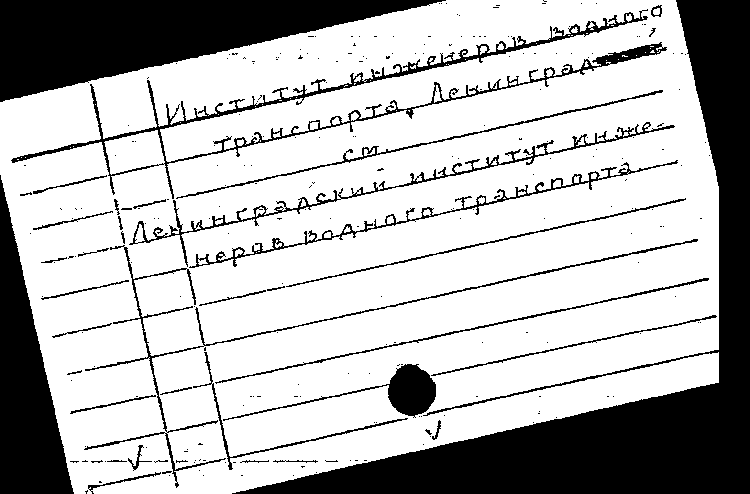 Институт инженеров водного
транспорта, Ленинград
см.
Ленинградский институт инже-
неров водного транспорта.